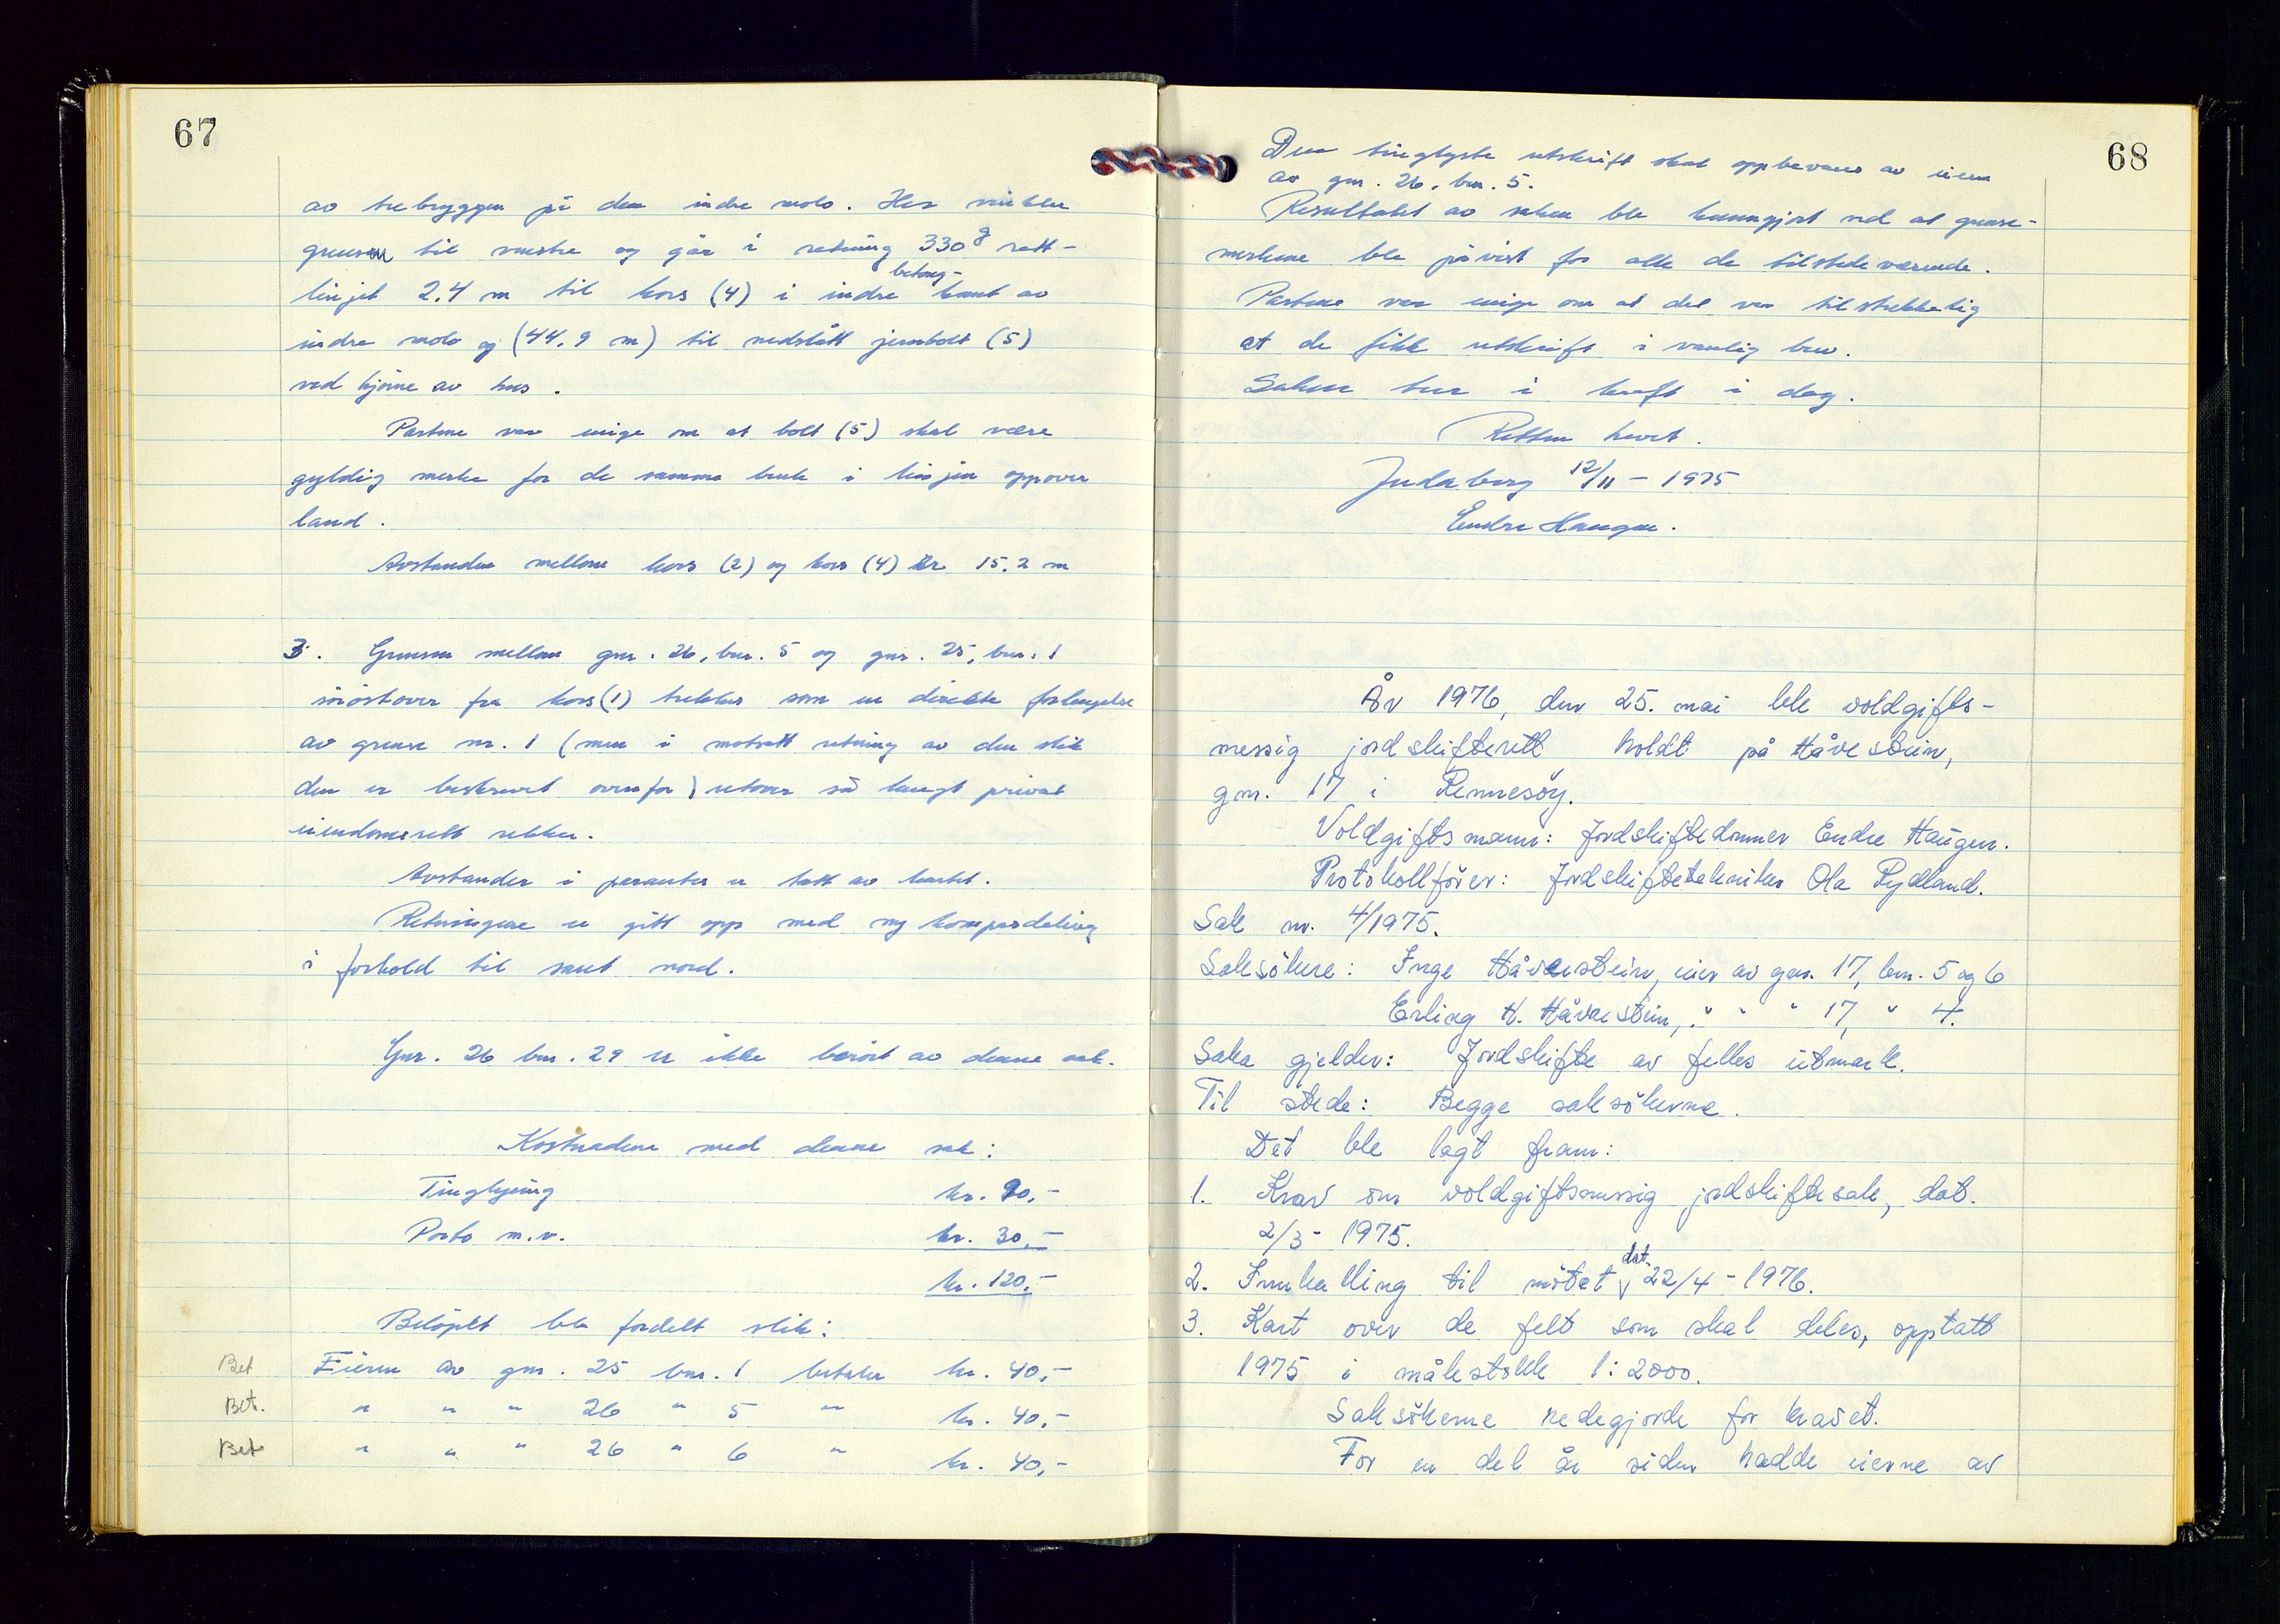 67
av trebryggen på den indre molo. Her vinkler
grensen til venstre og går i retning 330 g rett-
linjet 2,4 m til kors (4) i indre betong- kant av
indre molo og (44,9 m) til nedslått jernbolt (5)
ved hjørne av hus.
Partene var enige om at bolt (5) skal være
gyldig merke for de samme bruk i linjen oppover
land.
Avstanden mellom kors (2) og kors (4) er 15,2 m
3. Grensen mellom gnr. 26, bnr. 5 og gnr. 25, bnr. 1
sørøstover fra kors (1) trekkes som en direkte forlengelse
av grense nr. 1 (men i motsatt retning av den slik
den er beskrevet ovenfor) utover så langt privat
eiendomsrett rekker.
Avstander i parantes er tatt av kartet.
Retningene er gitt opp med ny kompassdeling
i forhold til sant nord.
Gnr. 26 bnr. 29 er ikke berørt av denne sak.
Kostnadene med denne sak:
Tinglysing kr. 90,-
Porto m.v. kr. 30,-
kr. 120,-
Beløpet ble fordelt slik:
Bet Eieren av gnr. 25 bnr. 1 betaler kr. 40,-
Bet. " " " 26 " 5 " kr. 40,-
Bet " " " 26 " 6 " kr. 40,-
68
Den tinglyste utskrift skal oppbevares av eieren
av gnr. 26, bnr. 5.
Resultatet av saken ble kunngjort ved at grense-
merkene ble påvist for alle de tilstedeværende.
Partene var enige om at det var tilstrekkelig
at de fikk utskrift i vanlig brev.
Saken trer i kraft i dag.
Retten hevet.
Judaberg 12/11 - 1975
Endre Haugen.
År 1976, den 25. mai ble voldgifts-
messig jordskifterett holdt på Håvestein,
gnr. 17 i Rennesøy.
Voldgiftsmann: Jordskiftedommer Endre Haugen.
Protokollfører: Jordskiftetekniker Ola Rydland.
Sak nr. 4/1975.
Saksøkere: Inge Håvestein, eier av gnr. 17, bnr. 5 og 6
Erling H. Håvestein, " " " 17, " 4.
Saka gjelder: Jordskifte av felles utmark.
Til stede: Begge saksøkerne.
Det ble lagt fram:
1. Krav om voldgiftsmessig jordskiftesak, dat.
2/3 - 1975.
2. Innkalling til møtet dat. 22/4 - 1976.
3. Kart over de felt som skal deles, opptatt
1975 i målestokk 1:2000.
Saksøkerne redegjorde for kravet.
For en del år siden hadde eierne av